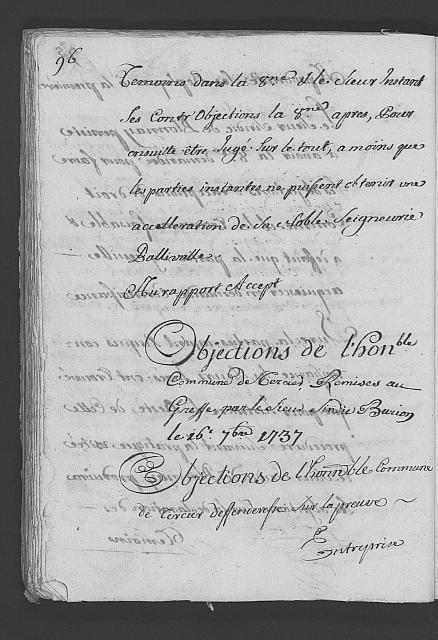 96
Temoins dans la 8.ne & le sieur Instant
ses Contr'Objections la 8.ne apres, Pour
ensuitte être Jugé Sur le tout, a moins que
les parties instantes ne puissent obtenir une
accelleration de Sa Noble Seigneurie
Ballivalle
Au rapport Accept
Objections de l'hon.ble
Commune de Cercier, Remises au
Greffe par le Sieur Sindic Burion
le 16.e 7bre 1737
Objections de l'honn.ble Commune
de Cercier deffenderesse sur la preuve
Entreprise